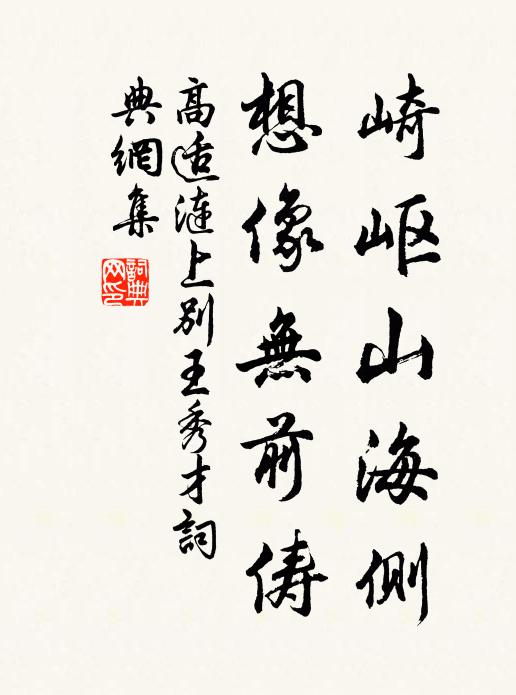 崎岖山海側
想像無前儔
高适漣上別王秀才詞
典網集
詞典网印